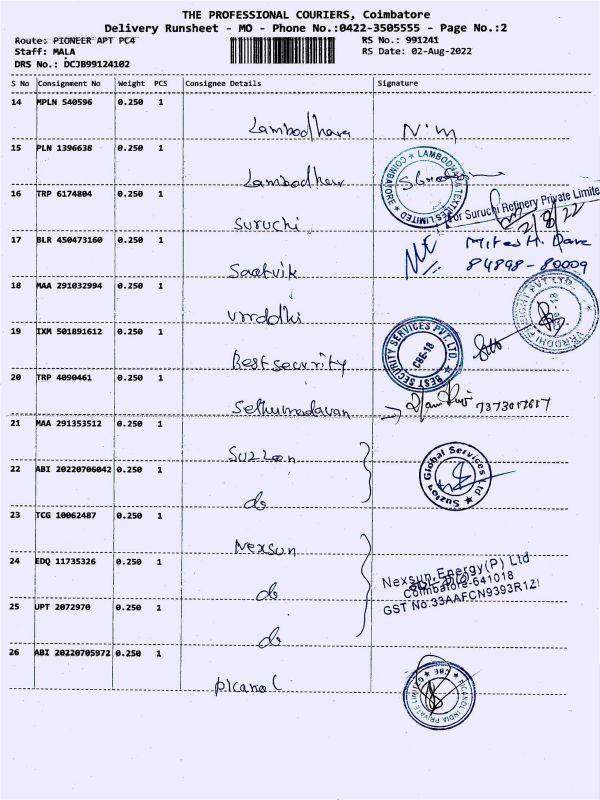 THE PROFESSIONAL COURIERS, Coimbatore
Delivery Runsheet - MO - Phone No.:0422-3505555 - Page No.:2
Route: PIONEER APT PC4
RS No.: 991241
Staff: MALA
RS Date: 02-Aug-2022
DRS No.: DCJB99124102
S No Consignment No Weight PCS Consignee Details Signature
14 MPLN 540596 0.250 1
Lambodhara
15 PLN 1396638 0.250 1
LAMBODHARA TEXTILES LIMITED ★ COIMBATORE ★
16 TRP 6174804 0.250 1
Suruchi
For Suruchi Refinery Private Limite
2/8/22
17 BLR 450473160 0.250 1
Mites H. Dave
84898-80009
Saatvik
18 MAA 291032994 0.250 1
Vrrddhi
VRRDDHI FREIGHT PVT LTD.
19 IXM 501891612 0.250 1
Best security
★ BEST SECURITY SERVICES PVT. LTD.
CBE-18
20 TRP 4090461 0.250 1
Sethumadavan
21 MAA 291353512 0.250 1
Suzlon
22 ABI 20220706042 0.250 1
Suzlon Global Services Ltd ★
do
23 TCG 10062487 0.250 1
Nexsun
24 EDQ 11735326 0.250 1
Nexsun Energy(P) Ltd
Coimbatore-641018
GST No:33AAFCN9393R1Z
do
25 UPT 2072970 0.250 1
do
26 ABI 20220705972 0.250 1
picanol
PICANOL INDIA PRIVATE LIMITED ★ CBE ★